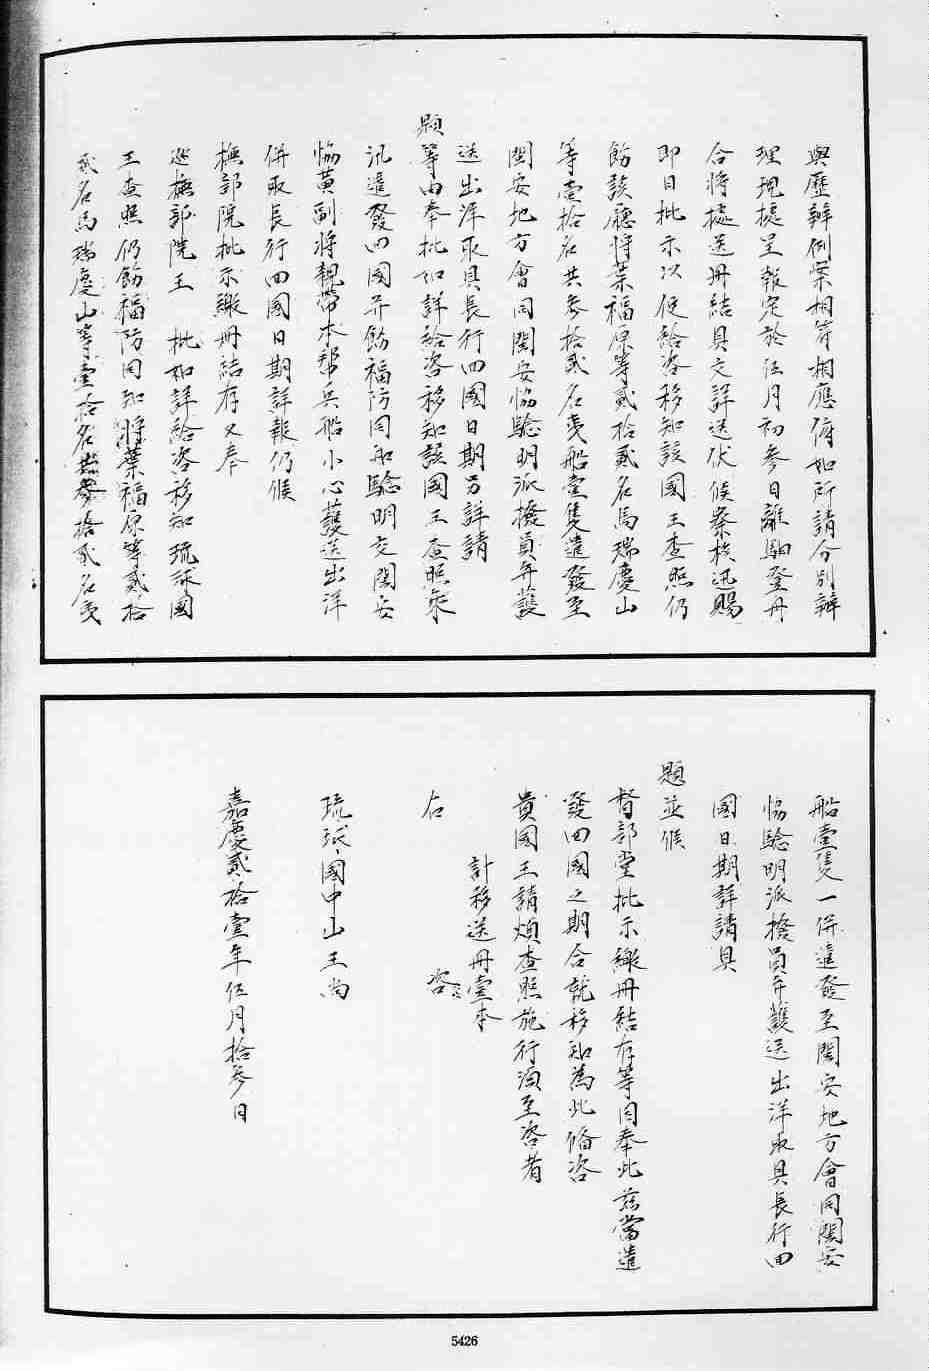 與歷辦例案相符相應俯如所請分別辦
理現據呈報定於伍月初參日離驛登舟
合將據送冊結具文詳送伏候察核迅賜
即日批示以便給咨移知該國王查照仍
飭該廳將葉福原等貳拾貳名馬瑞慶山
等壹拾名共參拾貳名夷船壹隻遣發至
閩安地方會同閩安協驗明派撥員弁護
送出洋取具長行回國日期另詳請
題等由奉批如詳給咨移知該國王查照乘
汛遣發回國并飭福防同知驗明交閩安
協黃副將親帶本部兵船小心護送出洋
併取長行回國日期詳報仍候
撫部院批示繳冊結存又奉
巡撫部院王 批如詳給咨移知琉球國
王查照仍飭福防同知將葉福原等貳拾
貳名馬瑞慶山等壹拾名共參拾貳名夷
船壹隻一併遣發至閩安地方會同閩安
協驗明派撥員弁護送出洋取具長行回
國日期詳請具
題並候
督部堂批示繳冊結存等因奉此茲當遣
發回國之期合就移知為此備咨
貴國王請煩查照施行須至咨者
計移送冊壹本
右 咨
琉球國中山王尚
嘉慶貳拾壹年伍月拾參日
5426